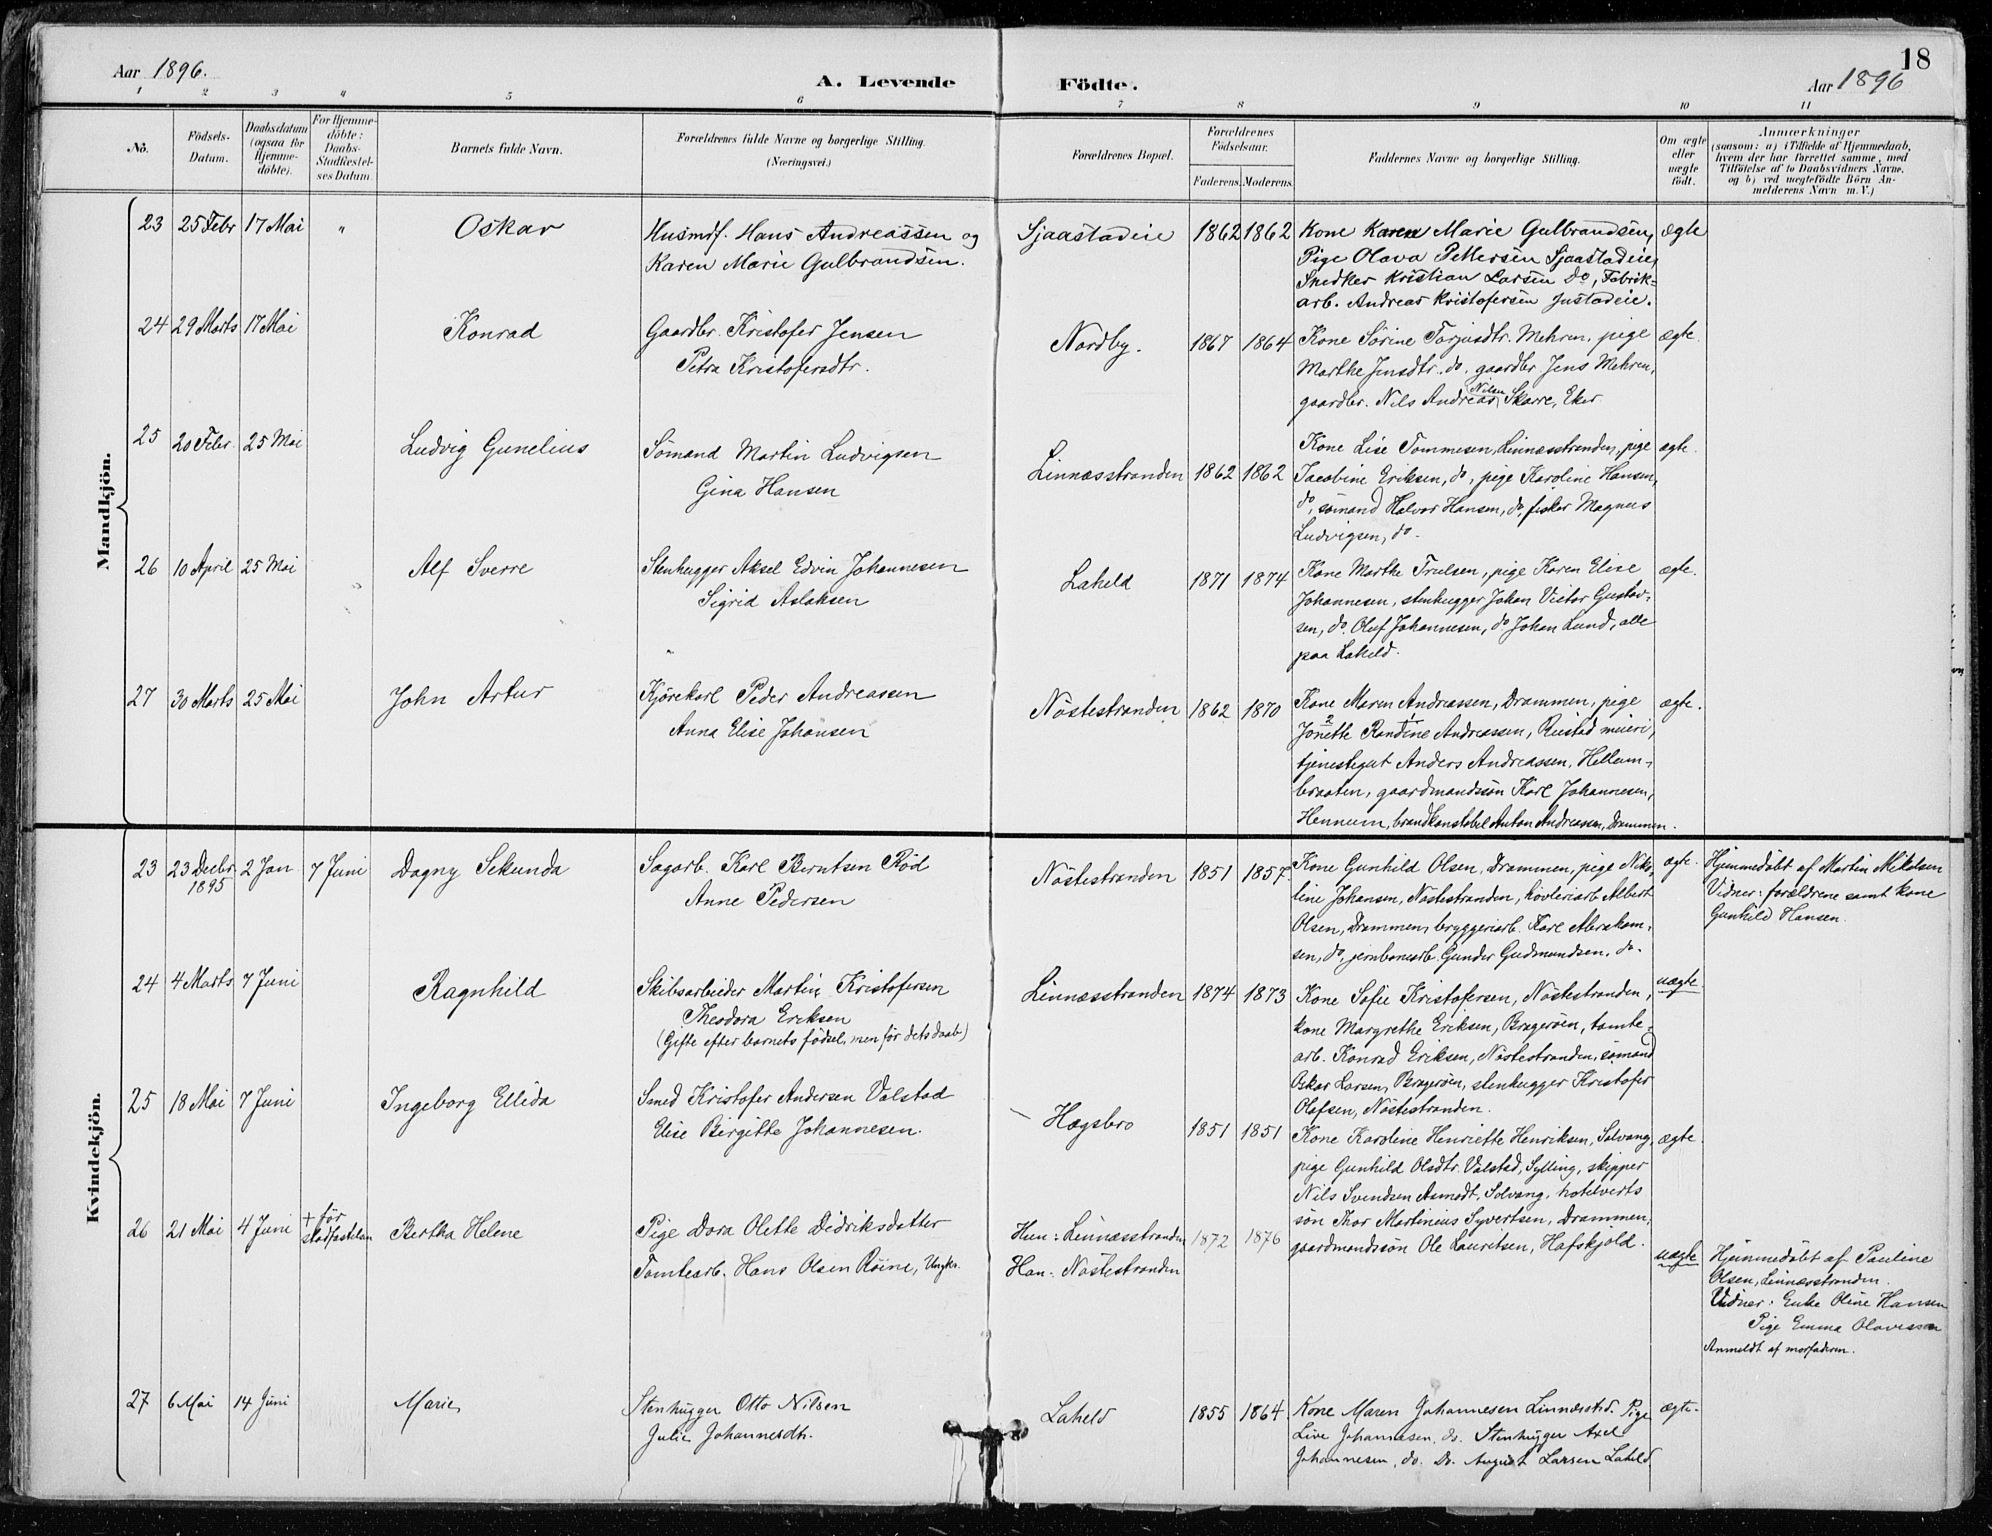 Aar 1896.
A. Levende Födte.
18
Aar 1896
1 2 3 4 5 6 7 8 9 10 11
Nô.
Födsels-
Datum.
Daabsdatum
(ogsaa for
Hjemme-
döbte).
For Hjemme-
döbte:
Daabs-
Stadfæstel-
ses Datum.
Barnets fulde Navn.
Forældrenes fulde Navne og borgerlige Stilling.
(Næringsvei.)
Forældrenes Bopæl.
Forældrenes
Födselsaar.
Faderens. Moderens.
Faddernes Navne og borgerlige Stilling.
Om ægte
eller
uægte
födt.
Anmærkninger
(saasom: a) i Tilfælde af Hjemmedaab,
hvem der har forrettet samme, med
Tilföielse af to Daabsvidners Navne,
og b) ved uægtefödte Börn An-
melderens Navn m. V.)
Mandkjön.
23 25 Febr 17 Mai " Oskar
Husmd. Hans Andreassen og
Karen Marie Gulbrandsen.
Sjaastadeie 1862 1862
Kone Karen Marie Gulbrandsen,
Pige Olava Pettersen Sjaastadeie,
Snedker Kristian Larsen do, Fabrik-
arb. Andreas Kristofersen Justadeie.
ægte
24 29 Marts 17 Mai Konrad
Gaardbr. Kristofer Jensen
Petra Kristofersdtr.
Nordby. 1867 1864
Kone Sörine Torjusdtr. Mehren, pige
Marthe Jensdtr. do. gaardbr Jens Mehren,
gaardbr. Nils Andreas Nilsen Skarre, Eker
ægte.
25 20 Febr. 25 Mai Ludvig Gunelius
Sömand Martin Ludvigsen
Gina Hansen
Linnæsstranden 1862 1862
Kone Lise Tommesen, Linnæsstranden, pige
Jacobine Eriksen, do, pige Karoline Hansen,
do, sömand Halvor Hansen, do, fisker Magnus
Ludvigsen, do.
ægte.
26 10 April 25 Mai Alf Sverre
Stenhugger Aksel Edvin Johannesen
Sigrid Aslaksen
Laheld 1871 1874
Kone Marthe Trulsen, pige Karen Elise
Johannesen, stenhugger Johan Victor Gustav-
sen, do. Oluf Johannesen, do Johan Lund, alle
paa Laheld.
ægte.
27 30 Marts 25 Mai John Artur
Kjörekarl Peder Andreassen
Anna Elise Johansen
Nöstestranden 1862 1870
Kone Maren Andreassen, Drammen, pige
Jonette 2 Randine 1 Andreassen, Rustad meieri,
tjenestegut Anders Andreassen, Hellum-
braaten, gaardmandssön Karl Johannesen,
Hennum, brandkonstabel Anton Andreassen, Drammen.
ægte.
Kvindekjön.
23 23 Decbr 1895 2 Jan 7 Juni Dagny Sekunda
Sagarb. Karl Berntsen Röd
Anne Pedersen
Nöstestranden 1851 1857
Kone Gunhild Olsen, Drammen, pige Niko-
line Johansen, Nöstestranden, hövleriarb Albert
Olsen, Drammen, bryggeriarb. Karl Abraham-
sen, do, jernbanearb. Gunder Gudmundsen, do.
ægte.
Hjemmedöbt af Martin Mikalsen
Vidner: forældrene samt kone
Gunhild Hansen.
24 4 Marts 7 Juni Ragnhild
Skibsarbeider Martin Kristofersen
Theodora Eriksen
(Gifte efter barnets födsel, men för dets daab)
Linnæsstranden 1874 1873
Kone Sofie Kristofersen, Nöstestranden,
kone Margrethe Eriksen, Bragerøen, tomte-
arb. Konrad Eriksen, Nöstestranden, sömand
Oskar Larsen, Bragerøen, stenhugger Kristofer
Olafsen, Nöstestranden.
uægte
25 18 Mai 7 Juni Ingeborg Ellida
Smed Kristofer Andersen Valstad
Elise Birgitte Johannesen.
Hægsbro 1851 1851
Kone Karoline Henriette Henriksen, Solvang,
pige Gunhild Olsdtr. Valstad, Sylling, skipper
Nils Svendsen Asmodt, Solvang, hotelverts
sön Thor Martinius Syvertsen, Drammen,
gaardmandssön Ole Lauritsen, Hafskjold.
ægte.
26 21 Mai 4 Juni + før stadfæstelsen Bertha Helene
Pige Dora Olette Didriksdatter
Tomtearb. Hans Olsen Röine, Ungkr.
Hun: Linnæsstranden
Han: Nöstestranden
1872 1876
uægte
Hjemmedöbt af Pauline
Olsen, Linnæsstranden.
Vidner: Enke Oline Hansen
Pige Emma Olavesen
Anmeldt af morfaderen.
27 6 Mai 14 Juni Marie
Stenhugger Otto Nilsen
Julie Johannesdtr.
Laheld 1855 1864.
Kone Maren Johannesen Linnæsstrd. Pige
Live Johannesen, do. Stenhugger Axel
Johannesen, do. Do. August Larsen Laheld
ægte.